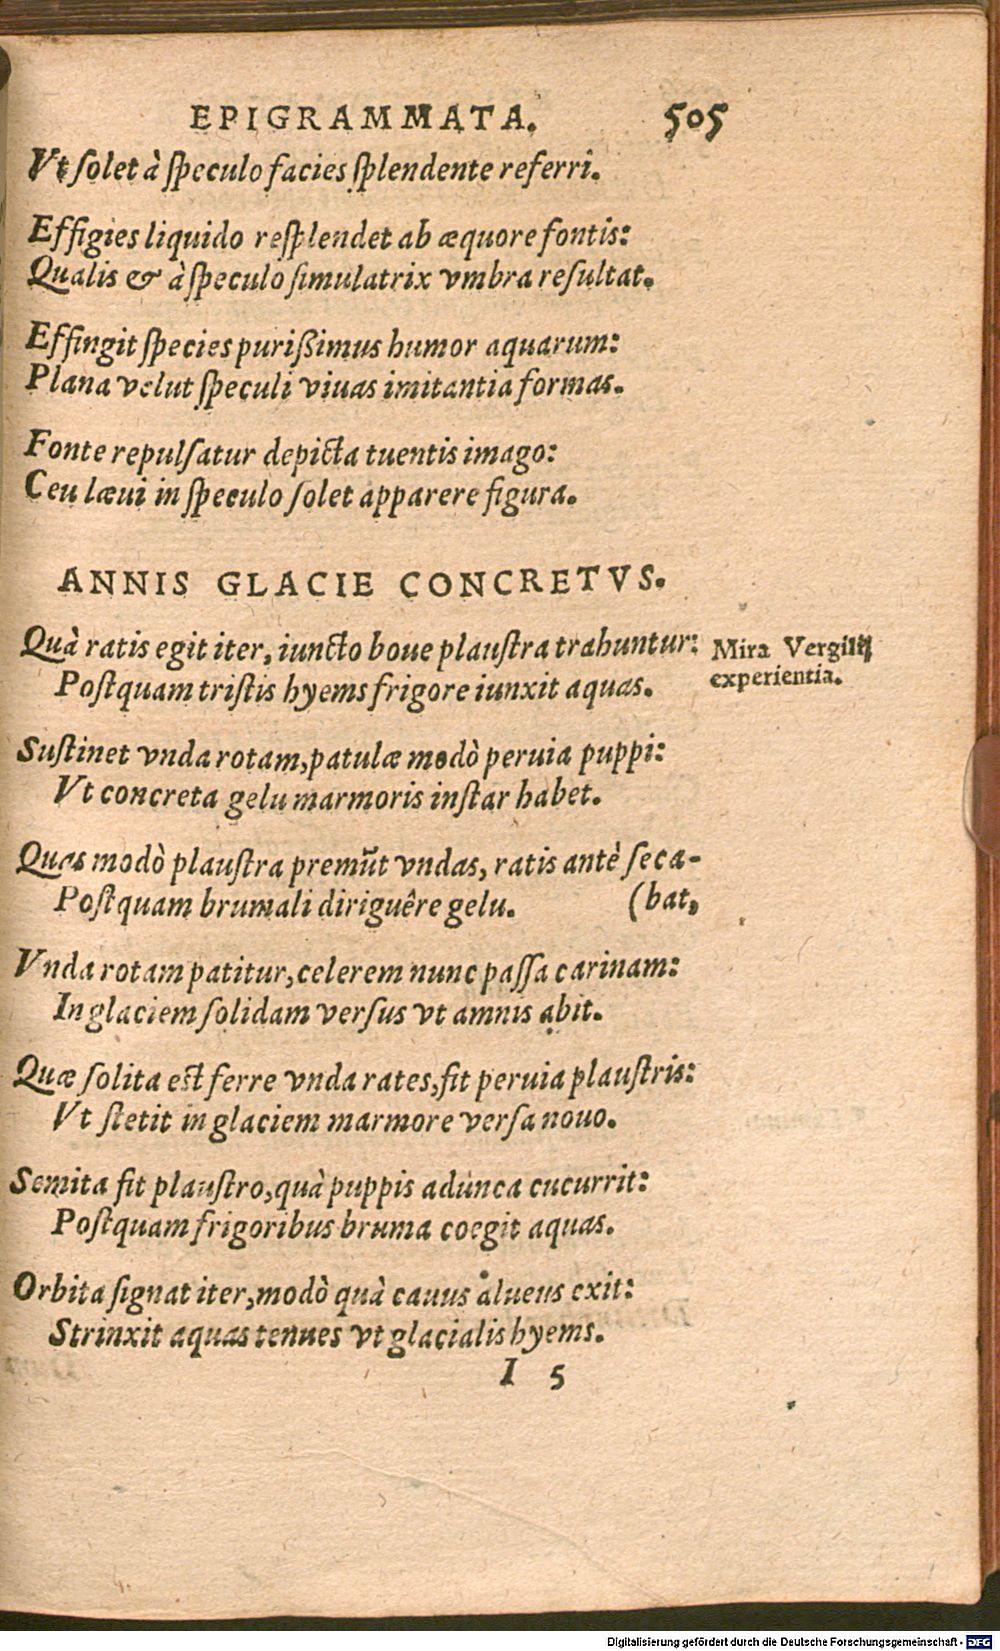 EPIGRAMMATA. 505
Vt ſolet à ſpeculo facies ſplendente referri.
Effigies liquido reſplendet ab æquore fontis:
Qualis & à ſpeculo ſimulatrix vmbra reſultat.
Effingit ſpecies purißimus humor aquarum:
Plana velut ſpeculi viuas imitantia formas.
Fonte repulſatur depicta tuentis imago:
Ceu læui in ſpeculo ſolet apparere figura.
ANNIS GLACIE CONCRETVS.
Quà ratis egit iter, iuncto boue plauſtra trahuntur:
Poſtquam triſtis hyems frigore iunxit aquas.
Mira Vergilij
experientia.
Suſtinet vnda rotam, patulæ modò peruia puppi:
Vt concreta gelu marmoris inſtar habet.
Quas modò plauſtra premũt vndas, ratis antè ſeca-
Poſtquam brumali diriguêre gelu. (bat,
Vnda rotam patitur, celerem nunc paſſa carinam:
In glaciem ſolidam verſus vt amnis abit.
Quæ ſolita est ferre vnda rates, fit peruia plauſtris:
Vt ſtetit in glaciem marmore verſa nouo.
Semita fit plauſtro, quà puppis adunca cucurrit:
Poſtquam frigoribus bruma coegit aquas.
Orbita ſignat iter, modò quà cauus alueus exit:
Strinxit aquas tenues vt glacialis hyems.
I 5
Digitalisierung gefördert durch die Deutsche Forschungsgemeinschaft - DFG